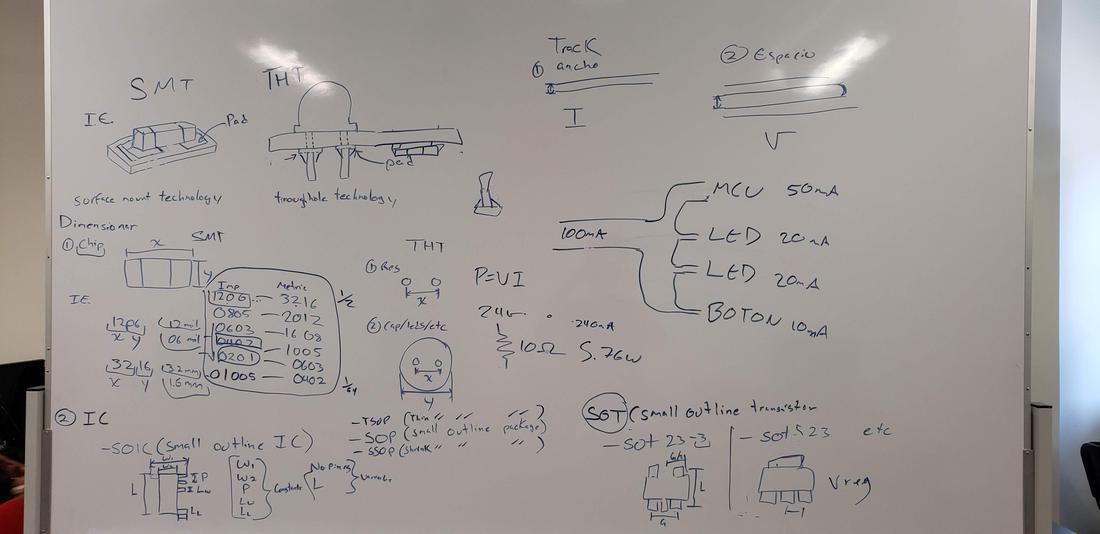 SMT
IE.
Pad
surface mount technology
THT
pad
throughole technology
Track
① ancho
I
② Espacio
V
100mA
MCU 50mA
LED 20mA
LED 20mA
BOTON 10mA
Dimensioner
① Chip
SMT
x
y
IE.
1206
x y
12mil
06 mil
3216
x y
3.2mm
1.6mm
Imp Metric
1206 — 3216
0805 — 2012
0603 — 1608
0402 — 1005
0201 — 0603
01005 — 0402
1/2
THT
① Res
x
② Cap/Leds/etc
x
y
P=VI
24v
240mA
10Ω 5.76w
② IC
-SOIC (Small outline IC)
W1
W2
L
P
Lw
LL
W1
W2
P
Lw
LL
No Pines
L
- TSOP (Thin " " ")
- SOP (Small outline package)
- SSOP (Shrink " " ")
SOT (small outline transistor
- SOT 23-3
L
G
- SOT 523 etc
Vreg